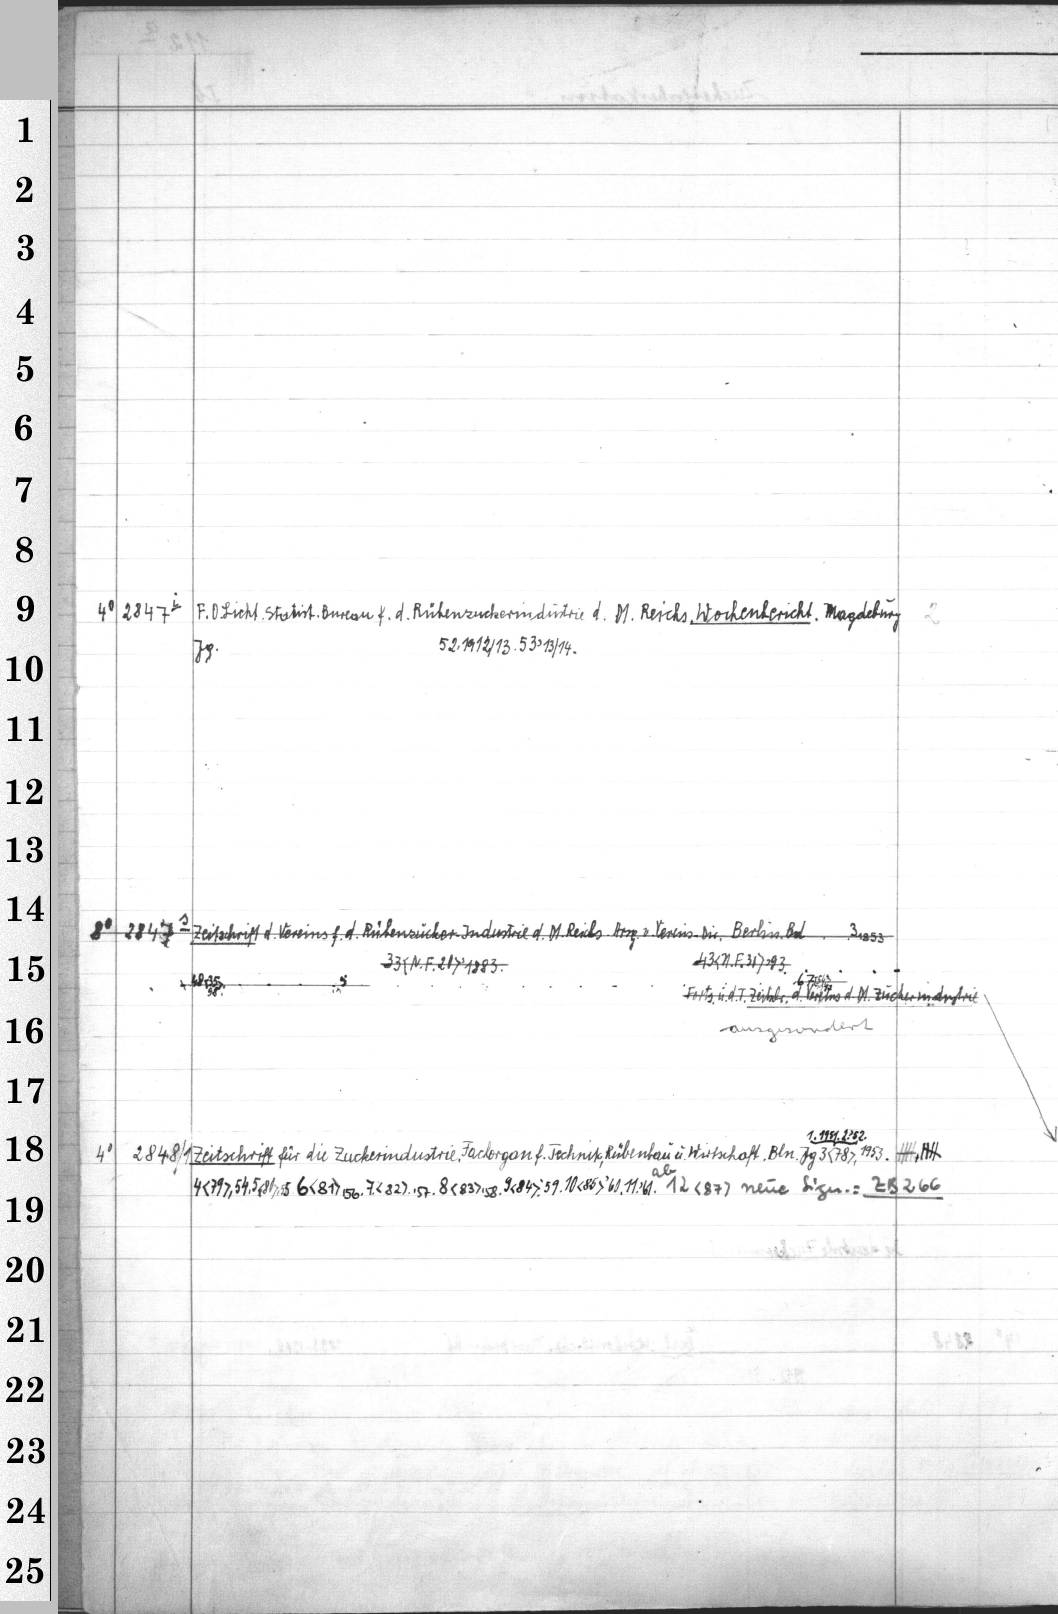 1
2
3
4
5
6
7
8
9
4° 2847 i F. O Licht. Statist. Bureau f. d. Rübenzuckerindustrie d. Dt. Reichs. Wochenbericht. Magdeburg
Jg. 52.1912/13. 53.13/14.
10
11
12
13
14
8° 2847 s Zeitschrift d. Vereins f. d. Rübenzucker-Industrie d. Dt. Reichs. Berlin. Bd 3.1853
15
33<N.F.20>1883. 43<N.F.30>93.
d. Vereins d. Dt. Zuckerindustrie
16
ausgesondert
17
1.1951.2.52.
18
4° 2848/1 Zeitschrift für die Zuckerindustrie. Fachorgan f. Technik, Rübenbau u. Wirtschaft. Bln. Jg 3<78>, 1953.
4<79>,54. 6<81>,56. 7<82>,57. 8<83>,58. 9<84>,59. 10<85>,60. 11,61. ab 12<87> neue Sign.: ZB 266
19
20
21
22
23
24
25